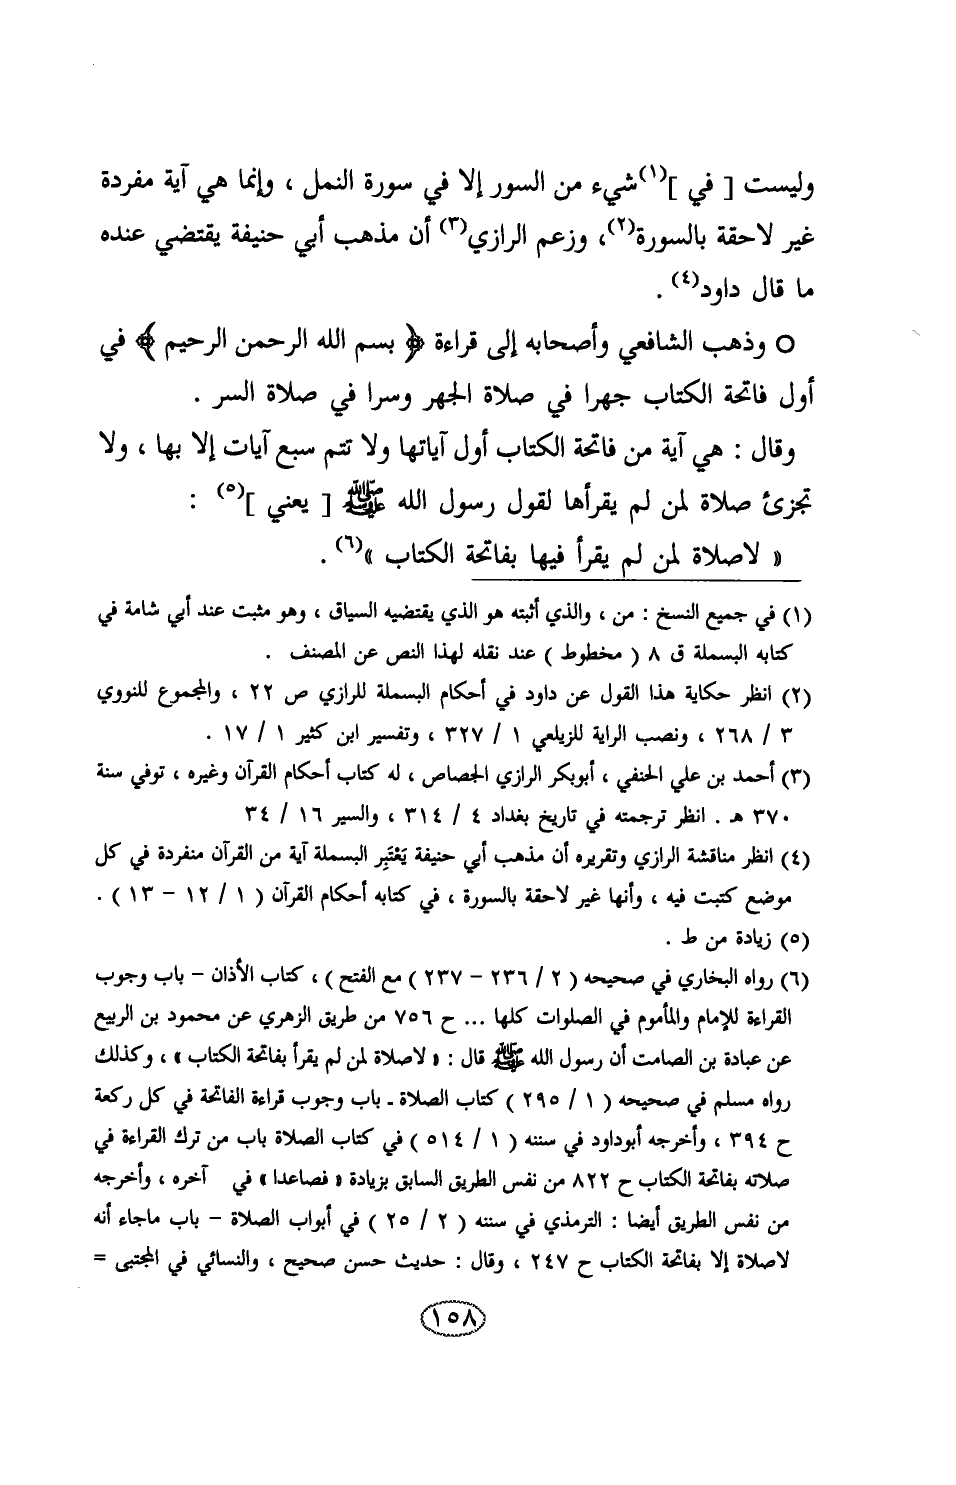 وليست [ في ](١) شيء من السور إلا في سورة النمل ، وإنما هي آية مفردة
غير لاحقة بالسورة(٢)، وزعم الرازي(٣) أن مذهب أبي حنيفة يقتضي عنده
ما قال داود(٤) .
○ وذهب الشافعي وأصحابه إلى قراءة ﴿ بسم الله الرحمن الرحيم ﴾ في
أول فاتحة الكتاب جهرا في صلاة الجهر وسرا في صلاة السر .
وقال : هي آية من فاتحة الكتاب أول آياتها ولا تتم سبع آيات إلا بها ، ولا
تجزئ صلاة لمن لم يقرأها لقول رسول الله ﷺ [ يعني ](٥) :
« لاصلاة لمن لم يقرأ فيها بفاتحة الكتاب »(٦) .
(١) في جميع النسخ : من ، والذي أثبته هو الذي يقتضيه السياق ، وهو مثبت عند أبي شامة في
كتابه البسملة ق ٨ ( مخطوط ) عند نقله لهذا النص عن المصنف .
(٢) انظر حكاية هذا القول عن داود في أحكام البسملة للرازي ص ٢٢ ، والمجموع للنووي
٣ / ٢٦٨ ، ونصب الراية للزيلعي ١ / ٣٢٧ ، وتفسير ابن كثير ١ / ١٧ .
(٣) أحمد بن علي الحنفي ، أبوبكر الرازي الجصاص ، له كتاب أحكام القرآن وغيره ، توفي سنة
٣٧٠ هـ . انظر ترجمته في تاريخ بغداد ٤ / ٣١٤ ، والسير ١٦ / ٣٤
(٤) انظر مناقشة الرازي وتقريره أن مذهب أبي حنيفة يَعْتَبِر البسملة آية من القرآن منفردة في كل
موضع كتبت فيه ، وأنها غير لاحقة بالسورة ، في كتابه أحكام القرآن ( ١ / ١٢ - ١٣ ) .
(٥) زيادة من ط .
(٦) رواه البخاري في صحيحه ( ٢ / ٢٣٦ - ٢٣٧ ) مع الفتح ) ، كتاب الأذان - باب وجوب
القراءة للإمام والمأموم في الصلوات كلها ... ح ٧٥٦ من طريق الزهري عن محمود بن الربيع
عن عبادة بن الصامت أن رسول الله ﷺ قال : « لاصلاة لمن لم يقرأ بفاتحة الكتاب » ، وكذلك
رواه مسلم في صحيحه ( ١ / ٢٩٥ ) كتاب الصلاة ـ باب وجوب قراءة الفاتحة في كل ركعة
ح ٣٩٤ ، وأخرجه أبوداود في سننه ( ١ / ٥١٤ ) في كتاب الصلاة باب من ترك القراءة في
صلاته بفاتحة الكتاب ح ٨٢٢ من نفس الطريق السابق بزيادة « فصاعدا » في آخره ، وأخرجه
من نفس الطريق أيضا : الترمذي في سننه ( ٢ / ٢٥ ) في أبواب الصلاة - باب ماجاء أنه
لاصلاة إلا بفاتحة الكتاب ح ٢٤٧ ، وقال : حديث حسن صحيح ، والنسائي في المجتبى =
١٥٨